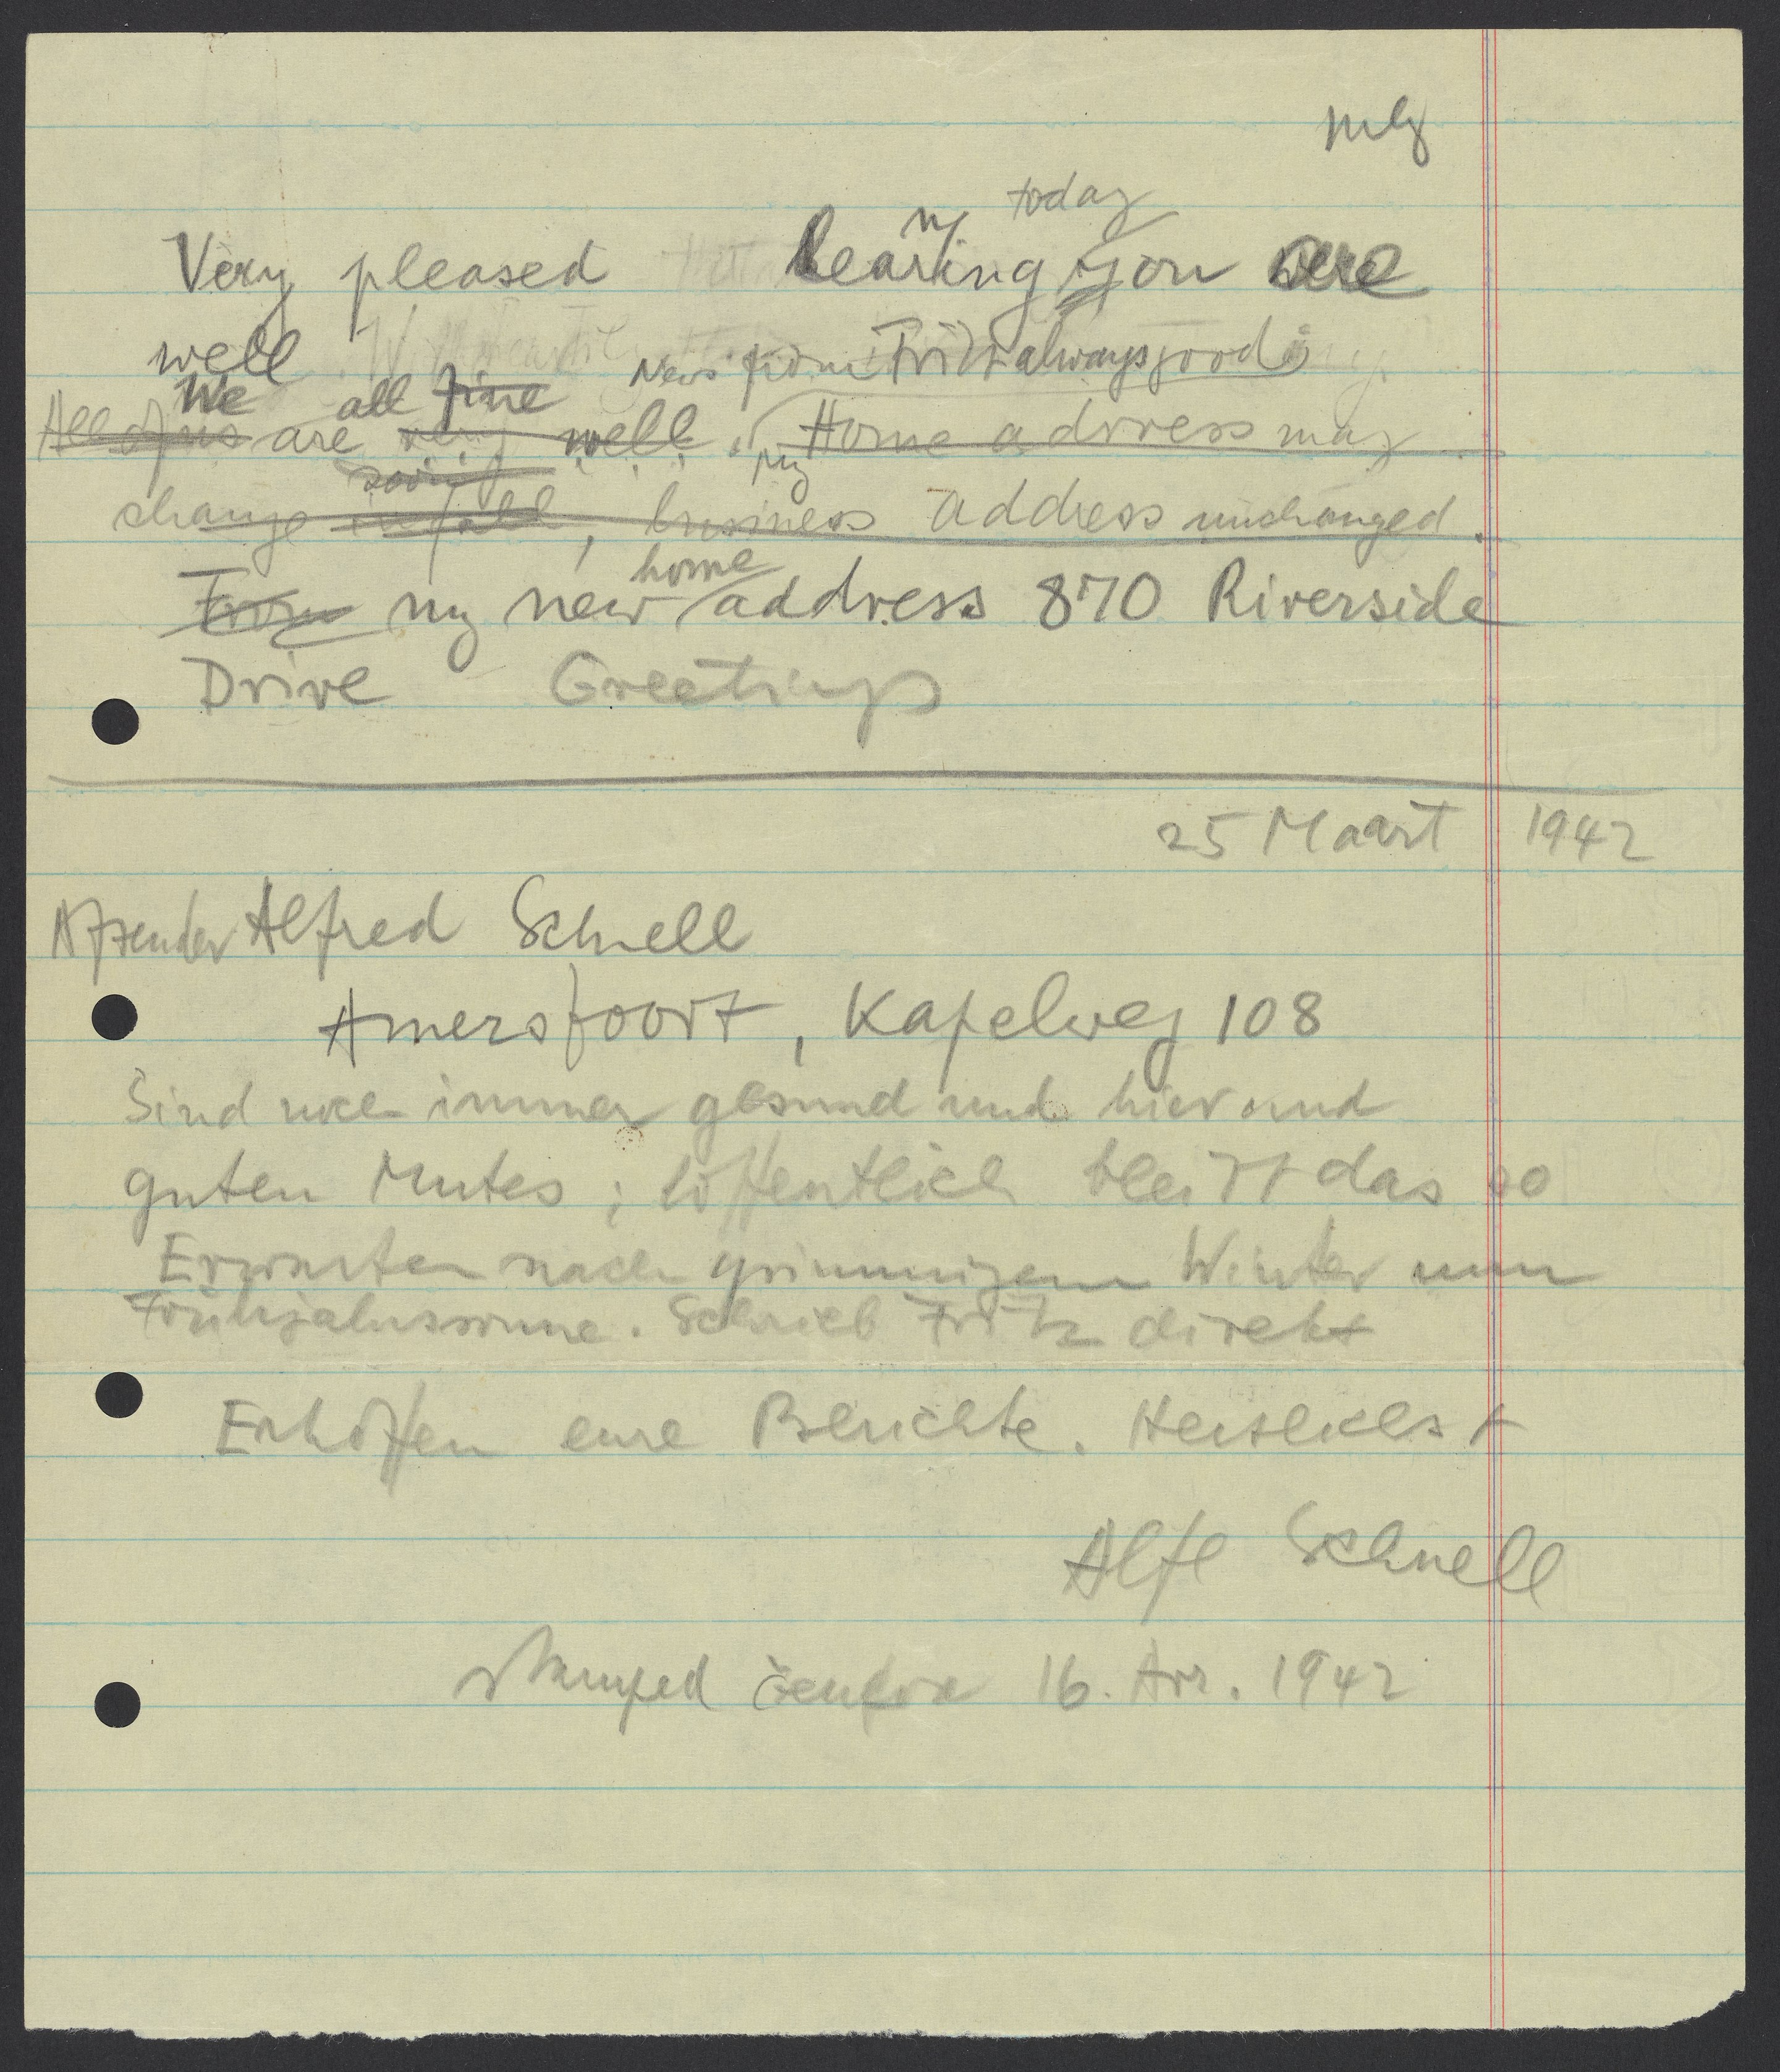 today
Very pleased hearing you are
well News from Fritz always good
We all fine
All of us are very well. Home address may
soon my
change in fall, business address unchanged.
home
From my new address 870 Riverside
Drive Greetings
25 Maart 1942
Afzender Alfred Schnell
Amersfoort, Kapelweg 108
Sind noch immer gesund und hier und
guten Mutes; hoffentlich bleibt das so
Erwarten nach grimmigem Winter nun
Frühjahrssonne. Schrieb Fritz direkt
Erhoffen eure Berichte. Herzlichst
Alfr Schnell
stamped 16. Avr. 1942